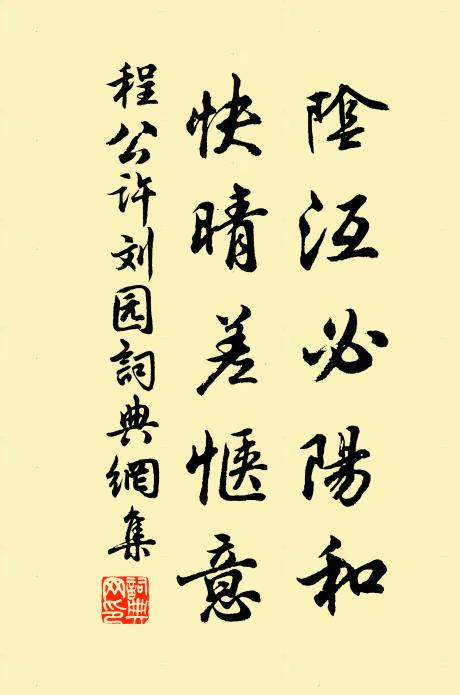 陰沍必陽和
快晴差愜意
程公许刘园詞典網集
詞典網印